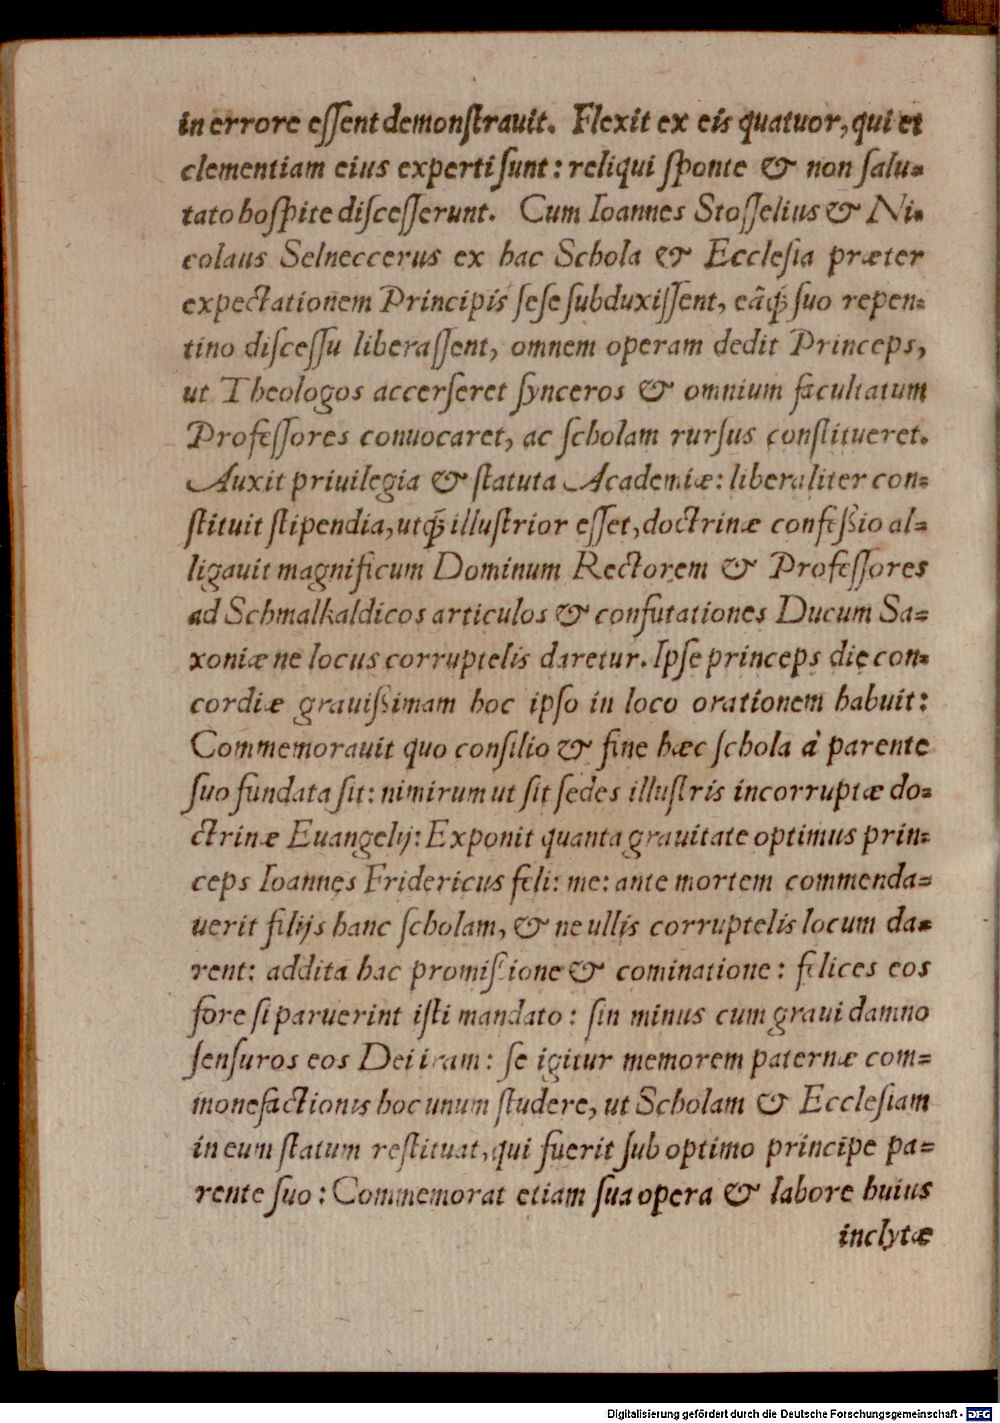 in errore eſſent demonſtrauit. Flexit ex eis quatuor, qui et
clementiam eius experti ſunt: reliqui ſponte & non ſalu-
tato hoſpite diſceſſerunt. Cum Ioannes Stoſſelius & Ni-
colaus Selneccerus ex hac Schola & Eccleſia præter
expectationem Principis ſeſe ſubduxiſſent, eāq́; ſuo repen-
tino diſceſſu liberaſſent, omnem operam dedit Princeps,
ut Theologos accerſeret ſynceros & omnium facultatum
Profeſſores conuocaret, ac ſcholam rurſus conſtitueret.
Auxit priuilegia & ſtatuta Academiæ: liberaliter con-
ſtituit ſtipendia, utq́; illuſtrior eſſet, doctrinæ confeßio al-
ligauit magnificum Dominum Rectorem & Profeſſores
ad Schmalkaldicos articulos & confutationes Ducum Sa-
xoniæ ne locus corruptelis daretur. Ipſe princeps die con-
cordiæ grauißimam hoc ipſo in loco orationem habuit:
Commemorauit quo conſilio & fine hæc ſchola à parente
ſuo fundata ſit: nimirum ut ſit ſedes illuſtris incorruptæ do-
ctrinæ Euangelij: Exponit quanta grauitate optimus prin-
ceps Ioannes Fridericus feli: me: ante mortem commenda-
uerit filijs hanc ſcholam, & ne ullis corruptelis locum da-
rent: addita hac promißione & cominatione: felices eos
fore ſi paruerint iſti mandato: ſin minus cum graui damno
ſenſuros eos Dei iram: ſe igitur memorem paternæ com-
monefactionis hoc unum ſtudere, ut Scholam & Eccleſiam
in eum ſtatum reſtituat, qui fuerit ſub optimo principe pa-
rente ſuo: Commemorat etiam ſua opera & labore huius
inclytæ
Digitalisierung gefördert durch die Deutsche Forschungsgemeinschaft - DFG